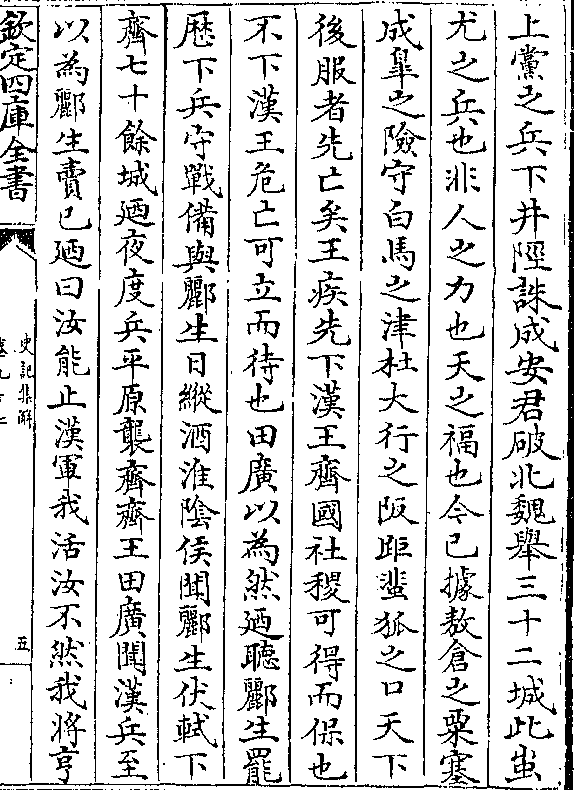 上黨之兵下井陘誅成安君破北魏舉三十二城此蚩
尤之兵也非人之力也天之福也今已據敖倉之粟塞
成臯之險守白馬之津杜大行之阪距蜚狐之口天下
後服者先亡矣王疾先下漢王齊國社稷可得而保也
不下漢王危亡可立而待也田廣以為然廼聽酈生罷
歷下兵守戰備與酈生日縱酒淮陰侯聞酈生伏軾下
齊七十餘城廼夜度兵平原襲齊齊王田廣聞漢兵至
以為酈生賣已廼曰汝能止漢軍我活汝不然我將亨
欽定四庫全書
史記集解
卷九十七
五